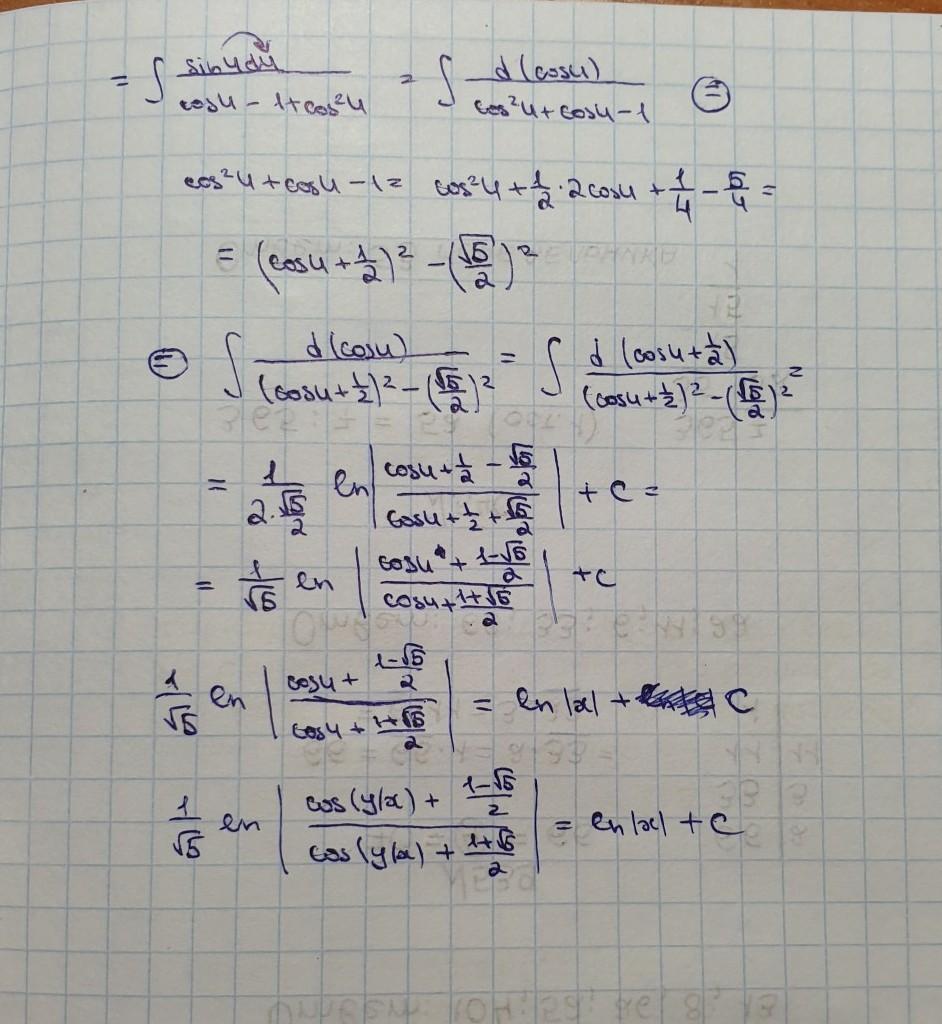 = ∫ sin u du / (cos u - 1 + cos²u) = ∫ d(cos u) / (cos²u + cos u - 1) ⊜
cos²u + cos u - 1 = cos²u + 1/2 · 2cos u + 1/4 - 5/4 =
= (cos u + 1/2)² - (√5/2)²
⊜ ∫ d(cos u) / ((cos u + 1/2)² - (√5/2)²) = ∫ d(cos u + 1/2) / ((cos u + 1/2)² - (√5/2)²) =
= 1/(2·√5/2) ln |(cos u + 1/2 - √5/2) / (cos u + 1/2 + √5/2)| + C =
= 1/√5 ln |(cos u + (1-√5)/2) / (cos u + (1+√5)/2)| + C
1/√5 ln |(cos u + (1-√5)/2) / (cos u + (1+√5)/2)| = ln|x| + C
1/√5 ln |(cos(y/x) + (1-√5)/2) / (cos(y/x) + (1+√5)/2)| = ln|x| + C